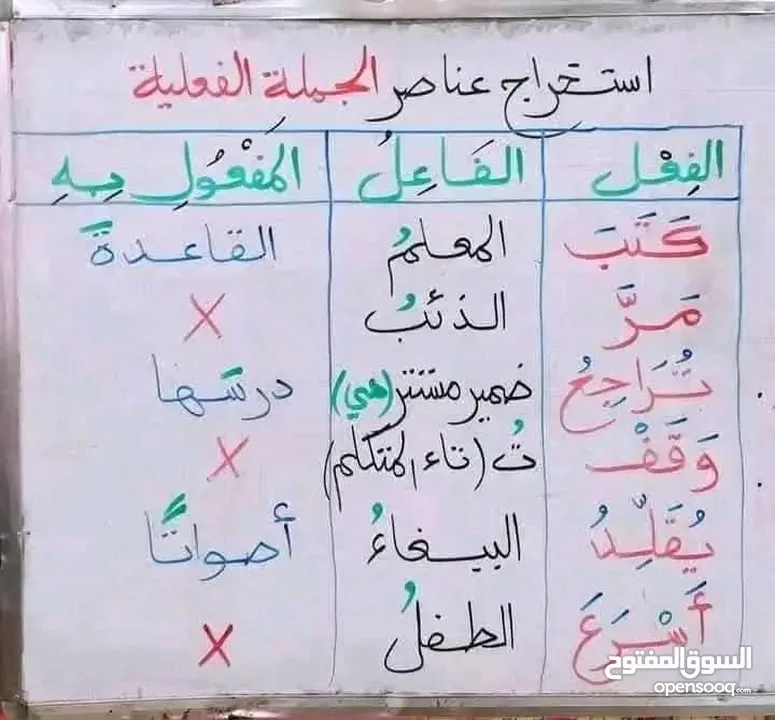 استخراج عناصر الجملة الفعلية
الفِعْل الفَاعِلُ المَفْعُولِ بِهِ
كَتَبَ المعلمُ القاعدةَ
مَرَّ الذئبُ X
تُرَاجِعُ ضمير مستتر (هي) درسَها
وَقَفْ تُ (تاء المتكلم) X
يُقَلِّدُ الببغاءُ أصواتًا
أَسْرَعَ الطفلُ X
السوق المفتوح
opensooq.com